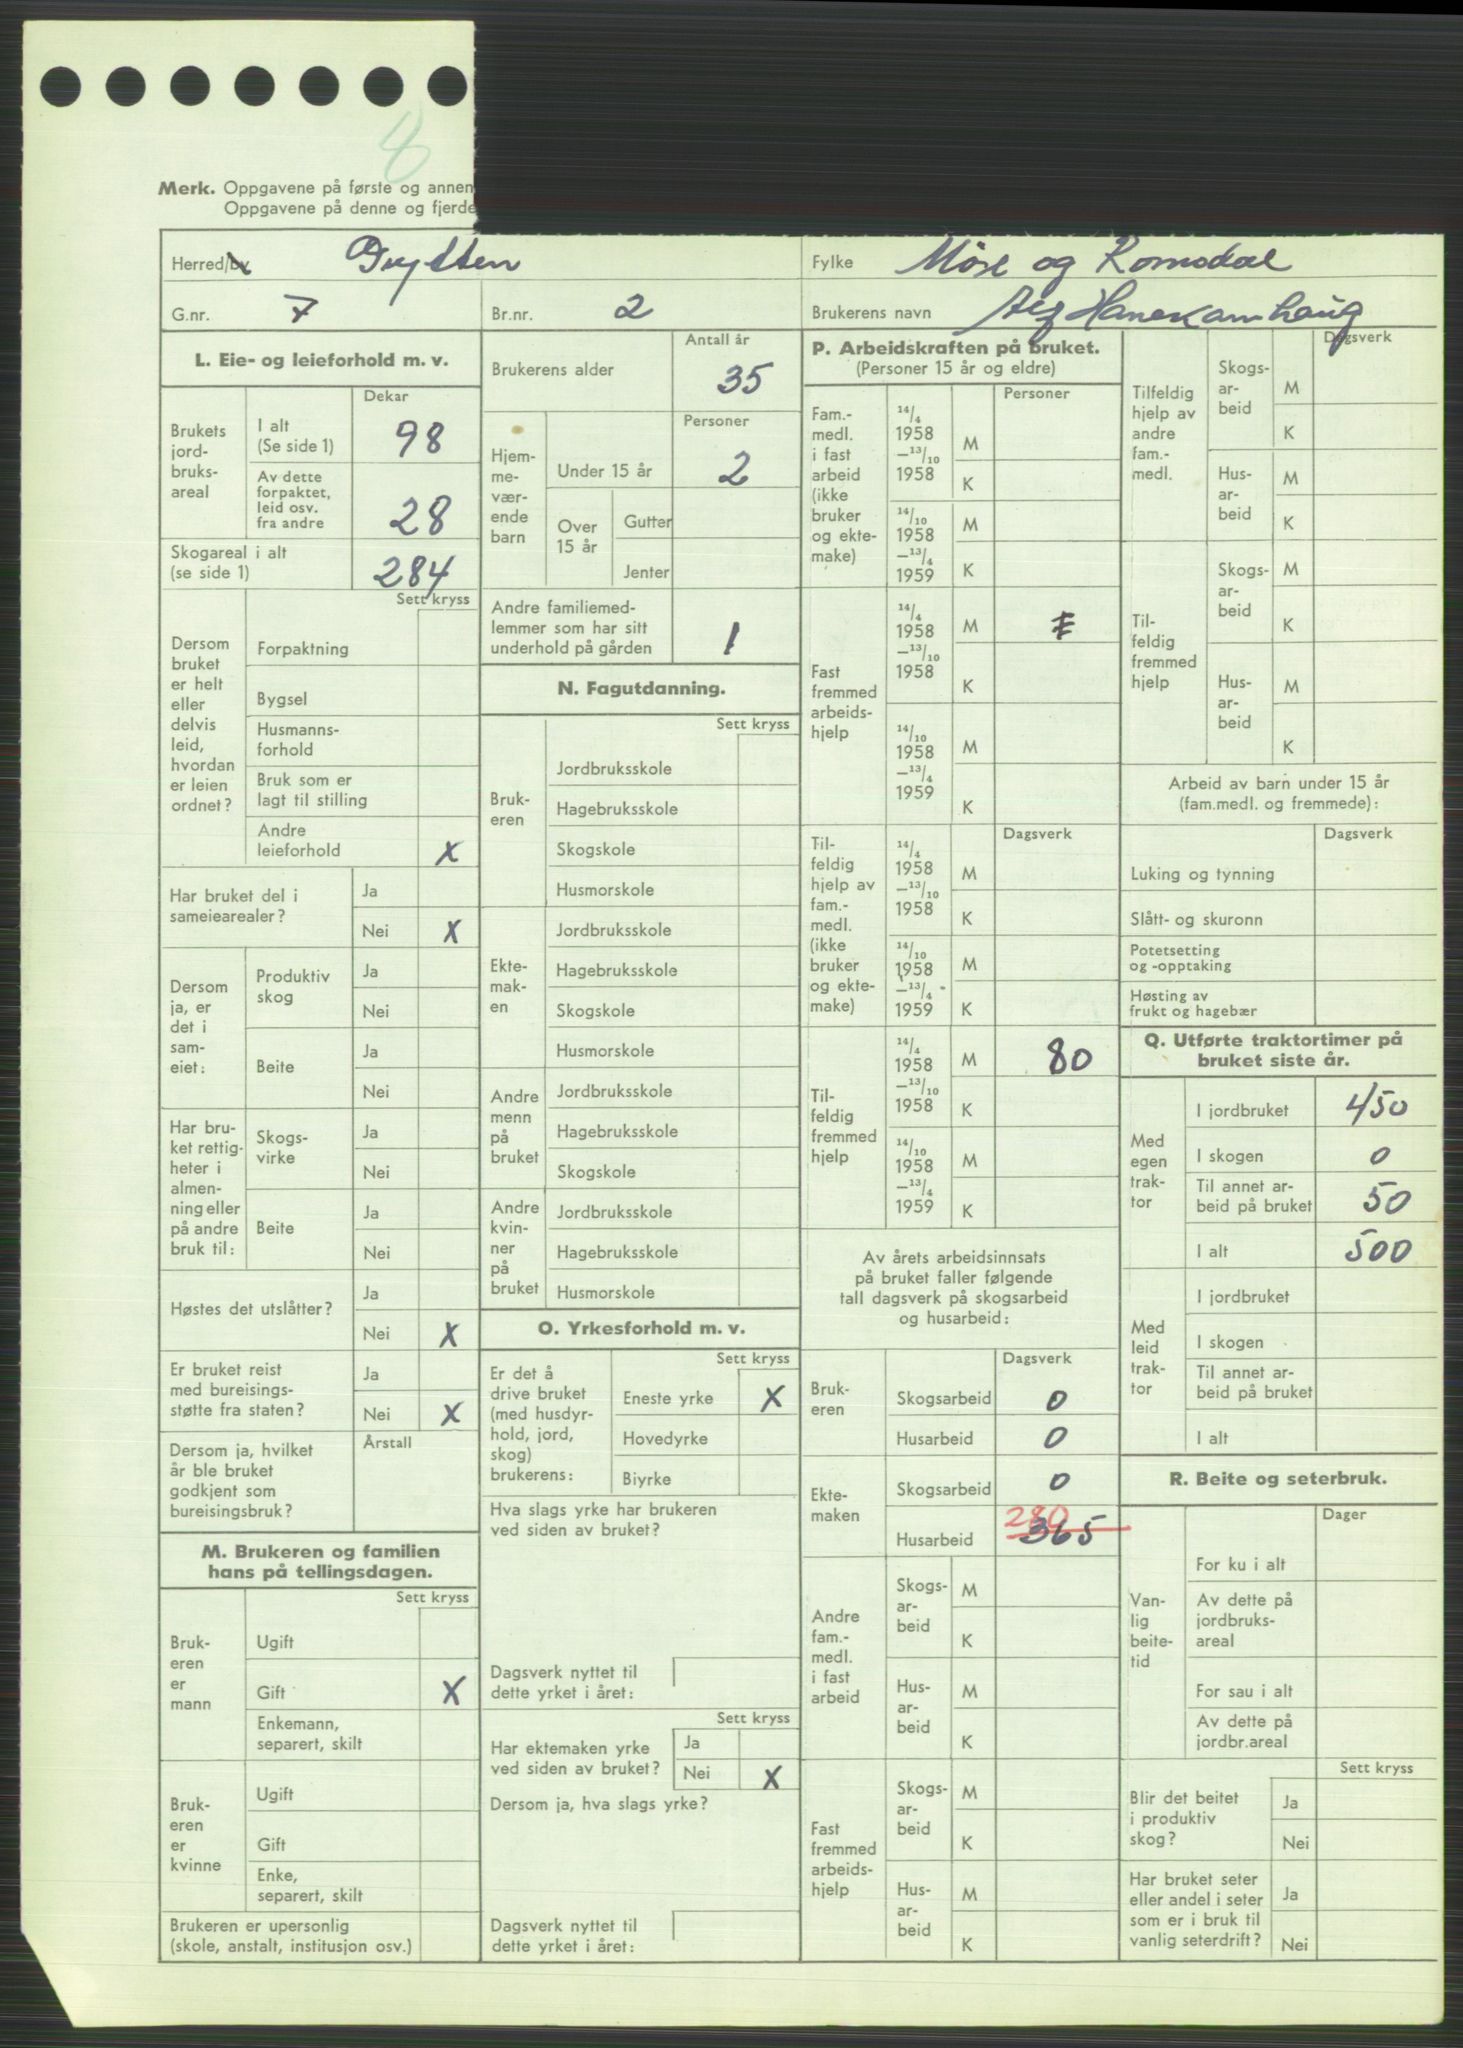 8
Merk. Oppgavene på første og annen
Oppgavene på denne og fjerde
Herred/by Grytten
Fylke Möre og Romsdal
G.nr. 7
Br.nr. 2
Brukerens navn Alf Hanekamhaug
L. Eie- og leieforhold m. v.
Dekar
Brukets jord-bruks-areal
I alt (Se side 1) 98
Av dette forpaktet, leid osv. fra andre 28
Skogareal i alt (se side 1) 284
Sett kryss
Dersom bruket er helt eller delvis leid, hvordan er leien ordnet?
Forpaktning
Bygsel
Husmanns-forhold
Bruk som er lagt til stilling
Andre leieforhold X
Har bruket del i sameiearealer?
Ja
Nei X
Dersom ja, er det i sam-eiet:
Produktiv skog
Ja
Nei
Beite
Ja
Nei
Har bru-ket rettig-heter i almen-ning eller på andre bruk til:
Skogs-virke
Ja
Nei
Beite
Ja
Nei
Høstes det utslåtter?
Ja
Nei X
Er bruket reist med bureisings-støtte fra staten?
Ja
Nei X
Dersom ja, hvilket år ble bruket godkjent som bureisingsbruk?
Årstall
M. Brukeren og familien hans på tellingsdagen.
Sett kryss
Bruk-eren er mann
Ugift
Gift X
Enkemann, separert, skilt
Bruk-eren er kvinne
Ugift
Gift
Enke, separert, skilt
Brukeren er upersonlig (skole, anstalt, institusjon osv.)
Antall år
Brukerens alder 35
Personer
Hjem-me-vær-ende barn
Under 15 år 2
Over 15 år
Gutter
Jenter
Andre familiemed-lemmer som har sitt underhold på gården 1
N. Fagutdanning.
Sett kryss
Bruk-eren
Jordbruksskole
Hagebruksskole
Skogskole
Husmorskole
Ekte-mak-en
Jordbruksskole
Hagebruksskole
Skogskole
Husmorskole
Andre menn på bruket
Jordbruksskole
Hagebruksskole
Skogskole
Andre kvin-ner på bruket
Jordbruksskole
Hagebruksskole
Husmorskole
O. Yrkesforhold m. v.
Sett kryss
Er det å drive bruket (med husdyr-hold, jord, skog) brukerens:
Eneste yrke X
Hovedyrke
Biyrke
Hva slags yrke har brukeren ved siden av bruket?
Dagsverk nyttet til dette yrket i året:
Sett kryss
Har ektemaken yrke ved siden av bruket?
Ja
Nei X
Dersom ja, hva slags yrke?
Dagsverk nyttet til dette yrket i året:
P. Arbeidskraften på bruket.
(Personer 15 år og eldre)
Personer
Fam.-medl. i fast arbeid (ikke bruker og ekte-make)
14/4 1958 —13/10 1958
M
K
14/10 1958 —13/4 1959
M
K
Fast fremmed arbeids-hjelp
14/4 1958 —13/10 1958
M
K
14/10 1958 —13/4 1959
M
K
Dagsverk
Til-feldig hjelp av fam.-medl. (ikke bruker og ekte-make)
14/4 1958 —13/10 1958
M
K
14/10 1958 —13/4 1959
M
K
Til-feldig fremmed hjelp
14/4 1958 —13/10 1958
M 80
K
14/10 1958 —13/4 1959
M
K
Av årets arbeidsinnsats på bruket faller følgende tall dagsverk på skogsarbeid og husarbeid:
Dagsverk
Bruk-eren
Skogsarbeid 0
Husarbeid 0
Ekte-maken
Skogsarbeid 0
Husarbeid 280 365
Andre fam.-medl. i fast arbeid
Skogs-ar-beid
M
K
Hus-ar-beid
M
K
Fast fremmed arbeids-hjelp
Skogs-ar-beid
M
K
Hus-ar-beid
M
K
Dagsverk
Tilfeldig hjelp av andre fam.-medl.
Skogs-ar-beid
M
K
Hus-ar-beid
M
K
Til-feldig fremmed hjelp
Skogs-ar-beid
M
K
Hus-ar-beid
M
K
Arbeid av barn under 15 år (fam.medl. og fremmede):
Dagsverk
Luking og tynning
Slått- og skuronn
Potetsetting og -opptaking
Høsting av frukt og hagebær
Q. Utførte traktortimer på bruket siste år.
Med egen trak-tor
I jordbruket 450
I skogen 0
Til annet ar-beid på bruket 50
I alt 500
Med leid trak-tor
I jordbruket
I skogen
Til annet ar-beid på bruket
I alt
R. Beite og seterbruk.
Dager
Van-lig beite-tid
For ku i alt
Av dette på jordbruks-areal
For sau i alt
Av dette på jordbr.areal
Sett kryss
Blir det beitet i produktiv skog?
Ja
Nei
Har bruket seter eller andel i seter som er i bruk til vanlig seterdrift?
Ja
Nei